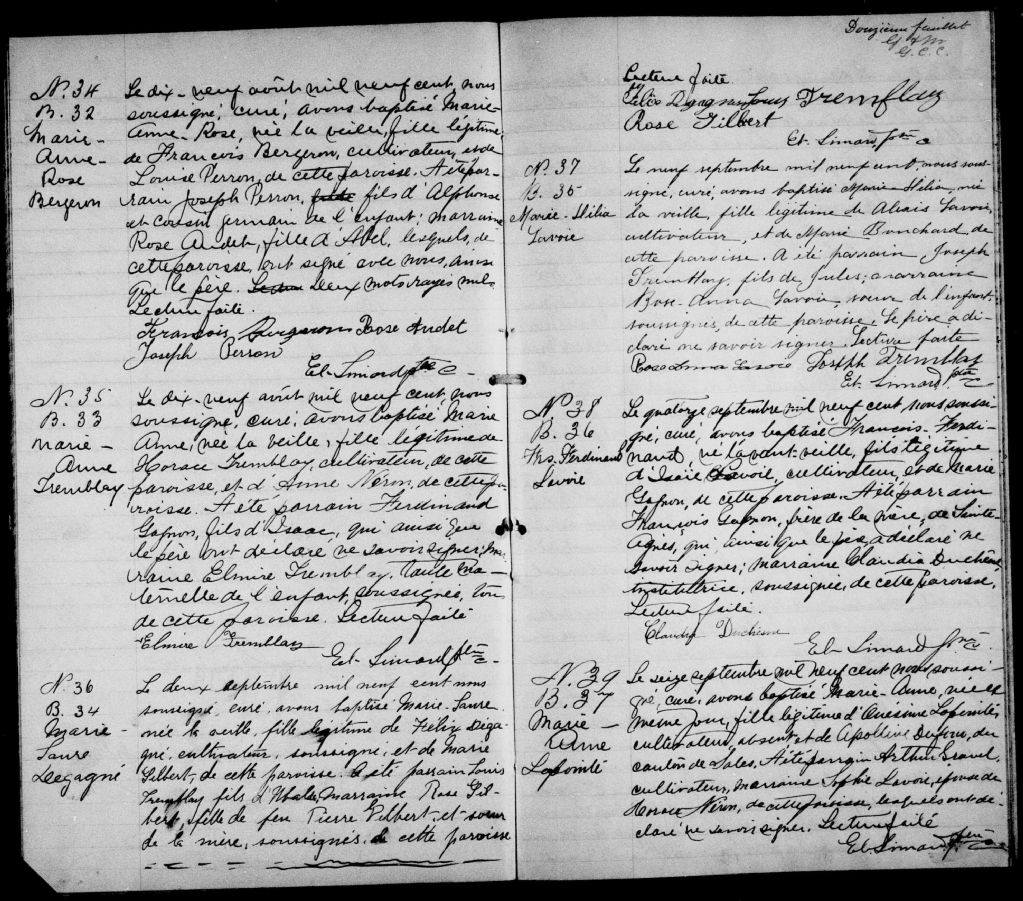 N. 34
B. 32
Marie-
Anne-
Rose
Bergeron
Le dix-neuf août mil neuf cent, nous
soussigné, curé, avons baptisé Marie-
Anne-Rose, née la veille, fille légitime
de François Bergeron, cultivateur, et de
Louise Perron, de cette paroisse. A été par-
rain Joseph Perron, fils d'Alphonse
et cousin germain de l'enfant; marraine
Rose Audet, fille d'Abel, lesquels, de
cette paroisse, ont signé avec nous, ainsi
que le père. Deux mots rayés nuls.
Lecture faite.
François Bergeron Rose Audet
Joseph Perron
Et. Simard ptre c
N. 35
B. 33
Marie-
Anne
Tremblay
Le dix-neuf août mil neuf cent, nous
soussigné, curé, avons baptisé Marie
Anne, née la veille, fille légitime de
Horace Tremblay, cultivateur, de cette
paroisse, et d'Anne Néron, de cette pa-
roisse. A été parrain Ferdinand
Gagnon, fils d'Isaac, qui ainsi que
le père ont déclaré ne savoir signer; mar-
raine Elmire Tremblay, tante ma-
ternelle de l'enfant, soussignée, tous
de cette paroisse. Lecture faite
Elmire Tremblay
Et. Simard ptre c
N. 36
B. 34
Marie-
Laure
Desgagné
Le deux septembre mil neuf cent nous
soussigné, curé, avons baptisé Marie-Laure
née la veille, fille légitime de Félix Déga-
gné, cultivateur, soussigné, et de Marie
Gilbert, de cette paroisse. A été parrain Louis
Tremblay fils d'Ubalde, Marraine Rose Gil-
bert, fille de feu Pierre Gilbert et soeur
de la mère, soussignés, de cette paroisse
Douzième feuillet
G. C. C.
Lecture faite
Félix Degagné Louis Tremblay
Rose Gilbert
Et. Simard ptre c
N. 37
B. 35
Marie-Délia
Savoie
Le neuf septembre mil neuf cent, nous sous-
signé, curé, avons baptisé Marie-Délia, née
la veille, fille légitime de Alexis Savoie,
cultivateur, et de Marie Bouchard de
cette paroisse. A été parrain Joseph
Tremblay, fils de Jules; marraine
Rose-Anna Savoie, soeur de l'enfant
soussignés, de cette paroisse. Le père a dé-
claré ne savoir signer. Lecture faite
Rose Anna Savoie Joseph Tremblay
Et. Simard ptre c
N. 38
B. 36
Frs. Ferdinand
Savoie
Le quatorze septembre mil neuf cent nous soussi-
gné, curé, avons baptisé François-Ferdi-
nand né l'avant-veille, fils légitime
d'Isaïe Savoie, cultivateur, et de Marie
Gagnon, de cette paroisse. A été parrain
François Gagnon, frère de la mère, de Sainte-
Agnès, qui ainsi que le père a déclaré ne
savoir signer; marraine Claudia Duchêne
institutrice, soussignée, de cette paroisse,
Lecture faite.
Claudia Duchesne
Et. Simard ptre c
N. 39
B. 37
Marie-
Anne
Lapointe
Le seize septembre mil neuf cent nous soussi-
gné, curé, avons baptisé Marie-Anne, née le
même jour, fille légitime d'Onésime Lapointe,
cultivateur, absent et de Apolline Dufour, du
canton de Sales. A été parrain Arthur Gravel,
cultivateur, marraine Sophie Savoie, épouse de
Horace Néron, de cette paroisse, lesquels ont dé-
claré ne savoir signer. Lecture faite
Et. Simard ptre c